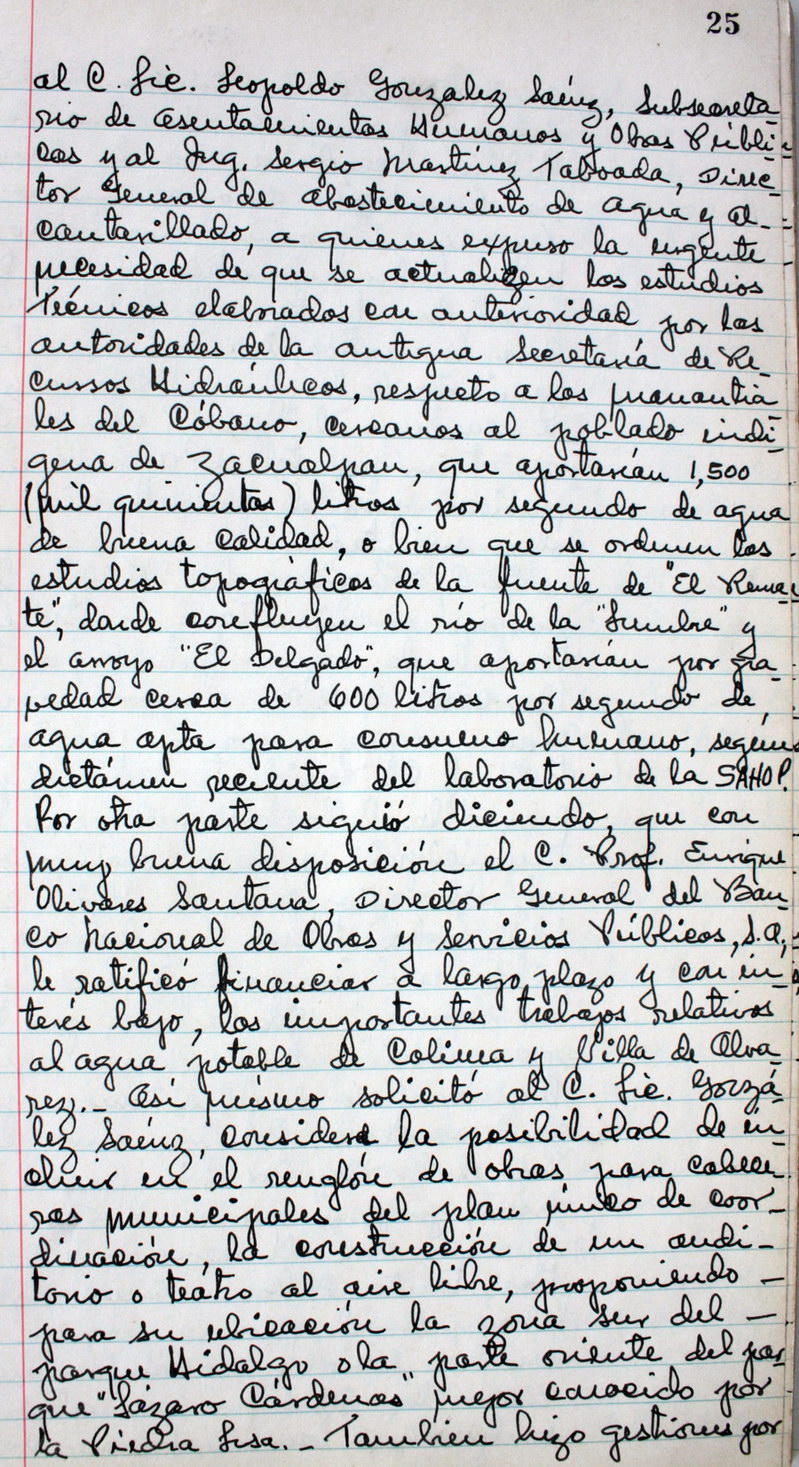 25
al C. Lic. Leopoldo Gonzalez Saénz, Subsecreta_
rio de Asentamientos Humanos y Obras Públi_
cas y al Ing. Sergio Martínez Taboada, Direc_
tor General de abastecimiento de agua y al_
cantarillado, a quienes expuso la urgente
necesidad de que se actualizen los estudios
Técnicos elaborados con anterioridad por las
autoridades de la antigua Secretaría de Re_
cursos Hidraúlicos, respeto a los manantia_
les del Cóbano, cercanos al poblado indí_
gena de Zacualpan, que aportarían 1,500
(mil quinientos) litros por segundo de agua
de buena calidad, o bien que se ordenen los
estudios topográficos de la fuente de "El Rema_
te", donde confluyen el río de la "Lumbre" y
el arroyo "El Delgado", que aportarían por gra_
vedad cerca de 600 litros por segundo de
agua apta para consumo humano, según
dictámen reciente del laboratorio de la SAHOP.
Por otra parte siguió diciendo, que con
muy buena disposición el C. Prof. Enrique
Olivares Santana, Director General del Ban_
co Nacional de Obras y Servicios Públicos, S.A.,
le ratificó financiar a largo plazo y con in_
terés bajo, los importantes trabajos relativos
al agua potable de Colima y Villa de Alva_
rez._ Así mismo solicitó al C. Lic. Gonzá_
lez Saénz, considere la posibilidad de in_
cluir en el renglón de obras para cabece_
ras municipales del plan único de coor_
dinación, la construcción de un audi_
torio o teátro al aire libre, proponiendo _
para su ubicación la zona sur del _
parque Hidalgo o la parte oriente del par_
que "Lázaro Cárdenas" mejor conocido por
la Piedra Lisa._ Tambien hizo gestiones por